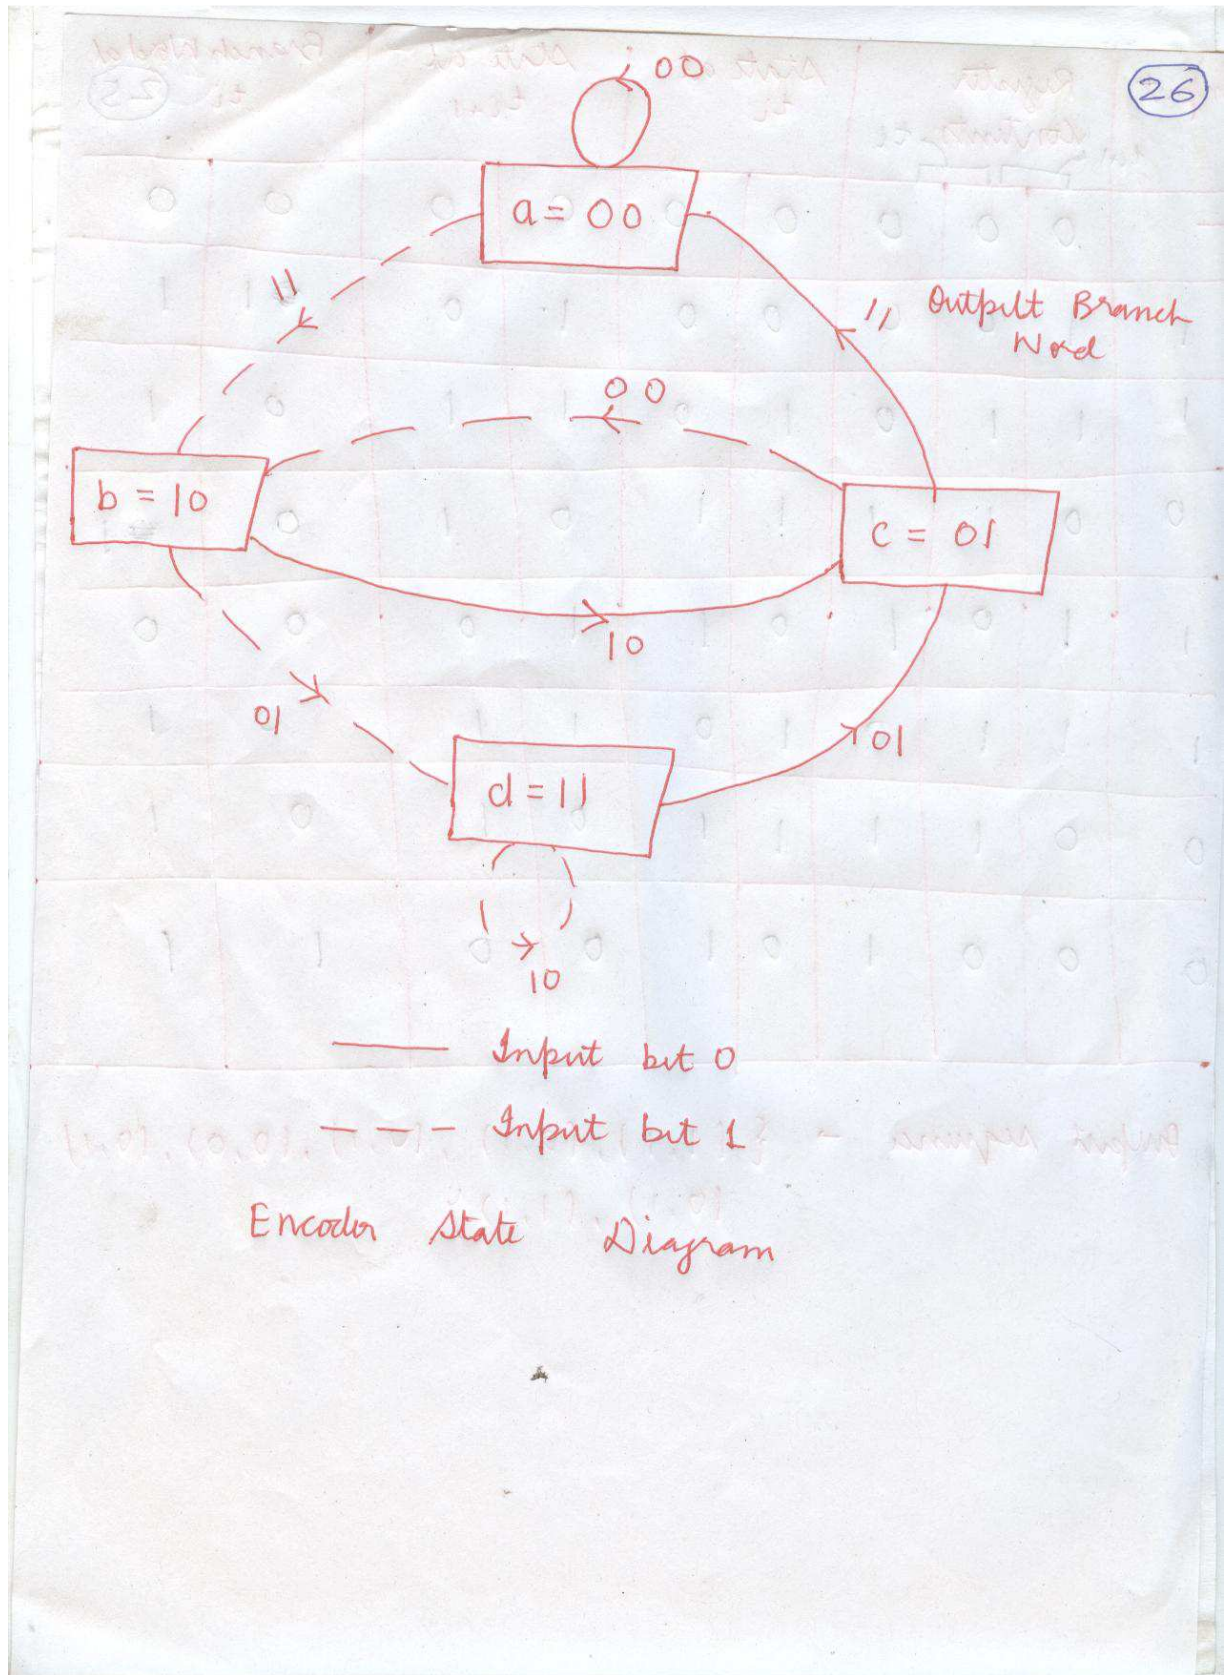 00
26
a = 00
11
11 Output Branch
Word
00
b = 10
c = 01
10
01
d = 11
01
10
Input bit 0
Input bit 1
Encoder State Diagram